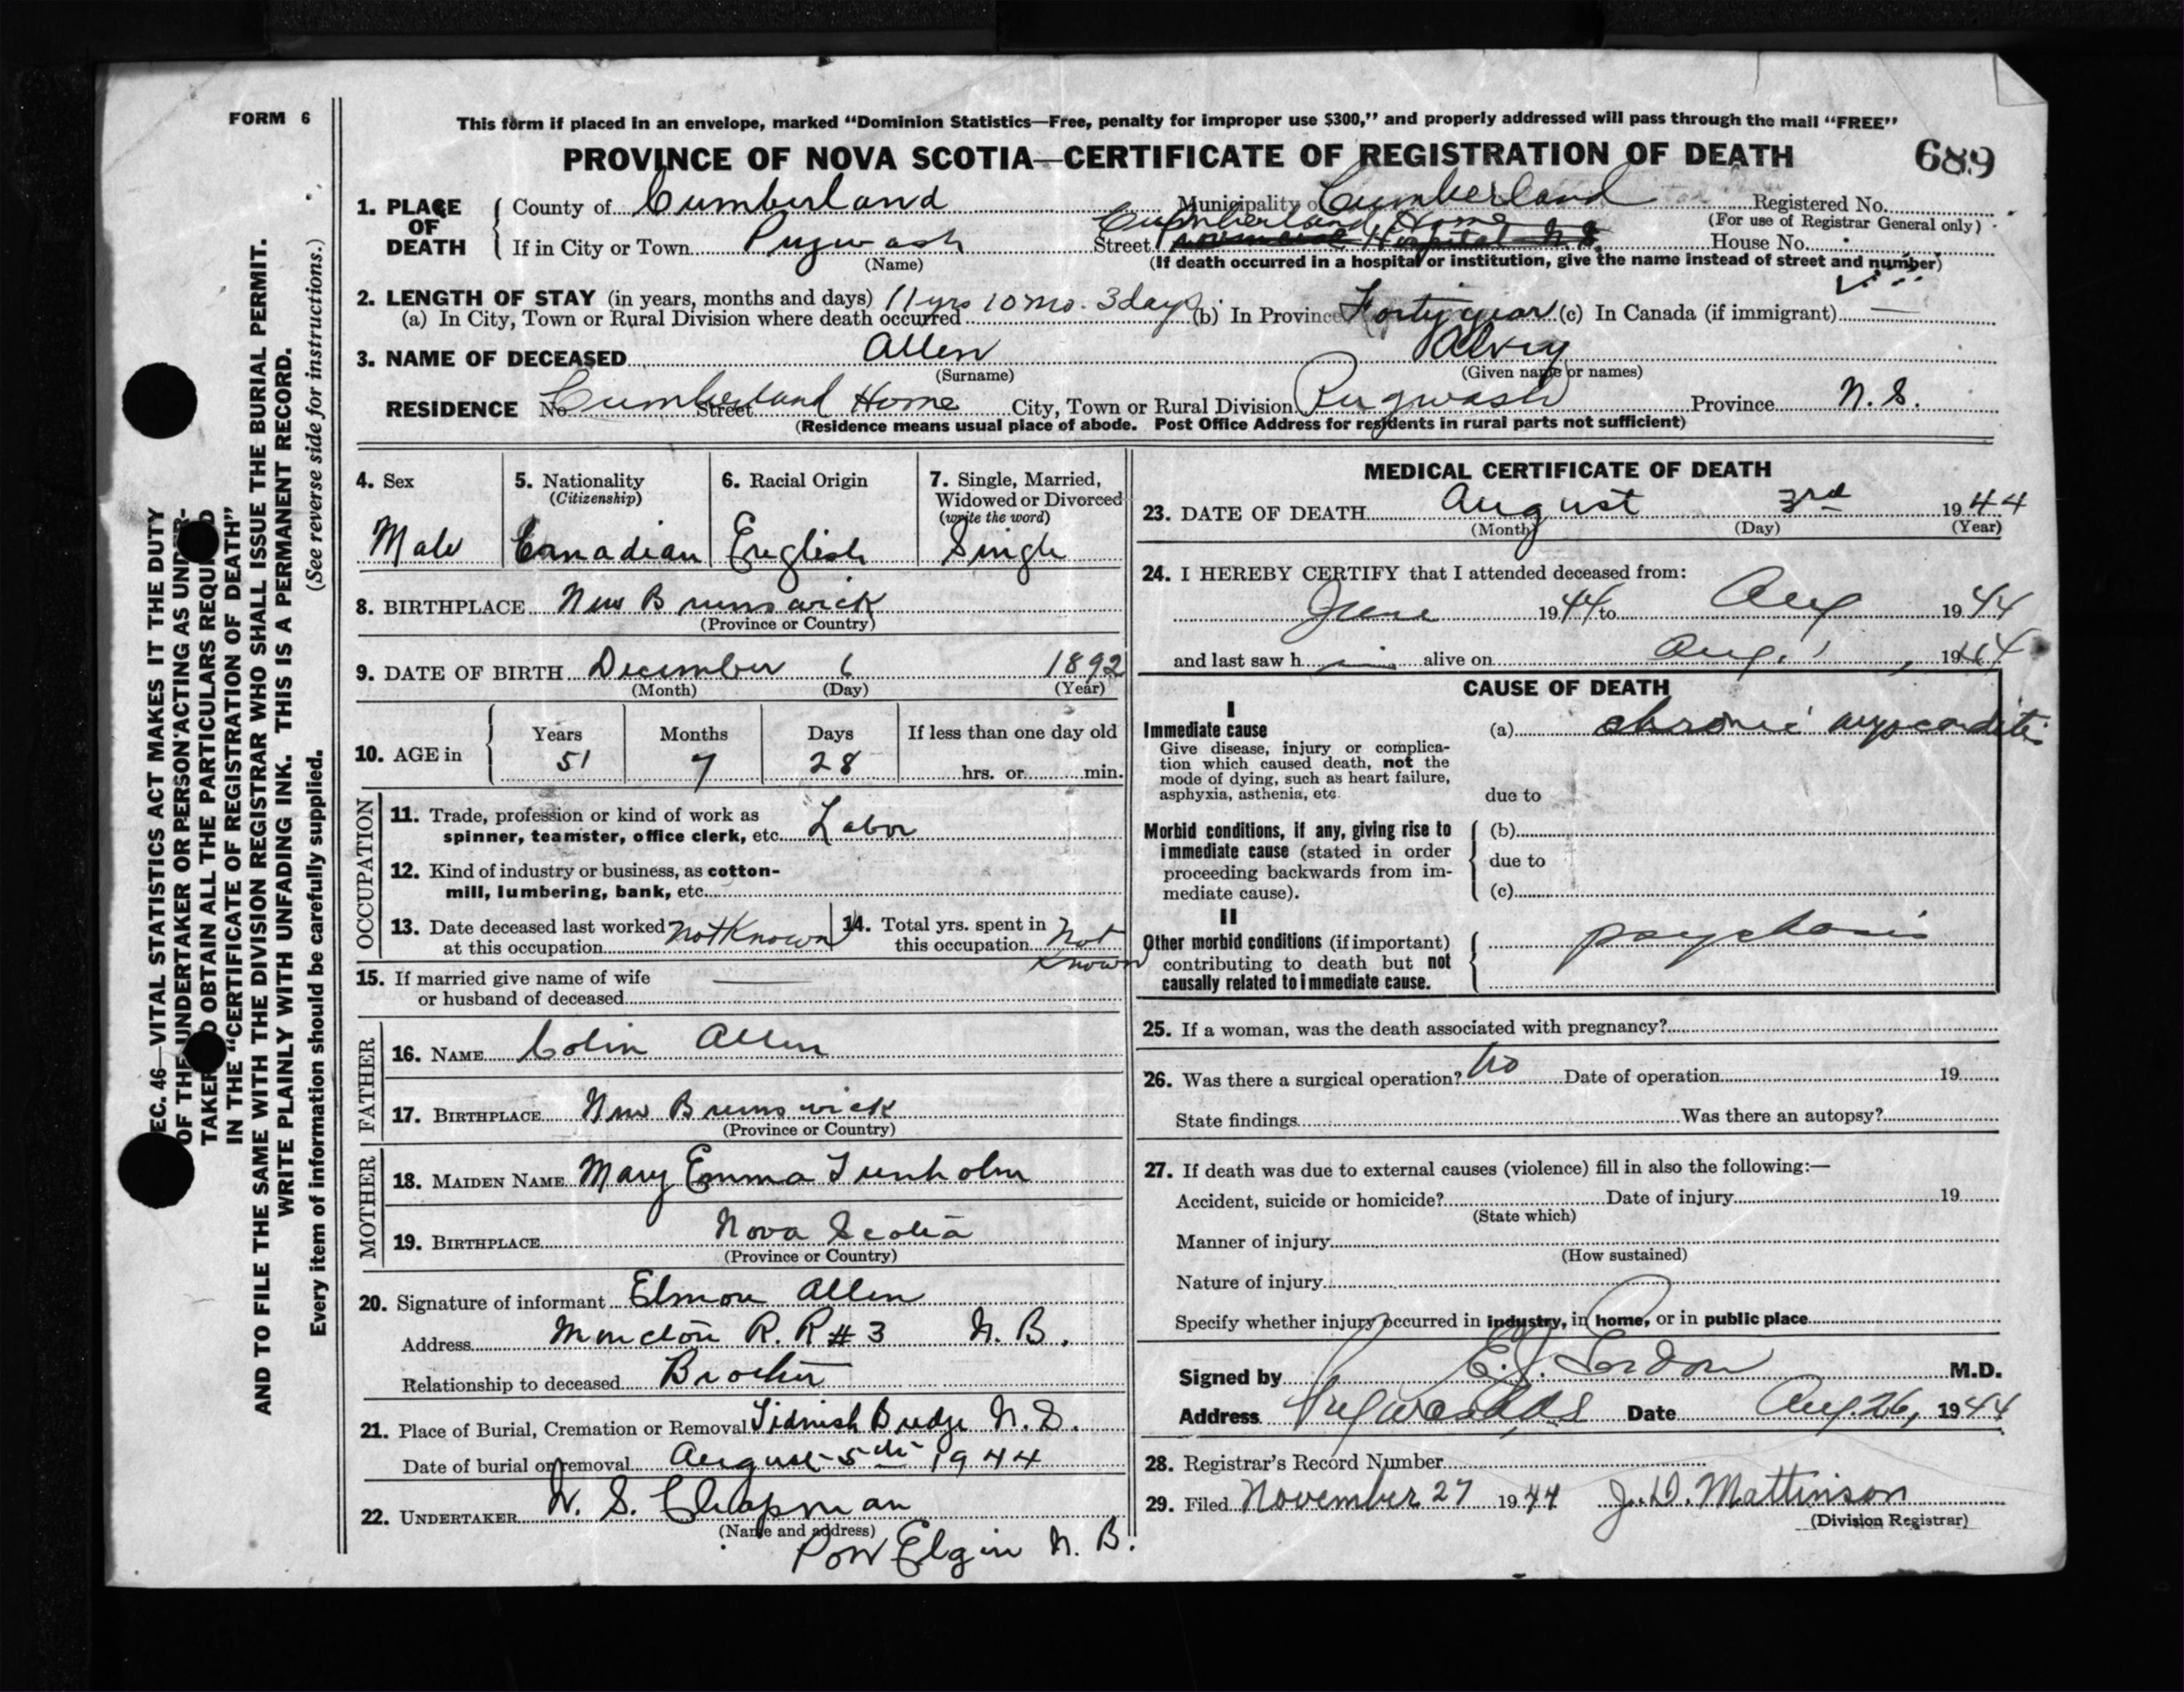 FORM 6
This form if placed in an envelope, marked "Dominion Statistics—Free, penalty for improper use $300," and properly addressed will pass through the mail "FREE"
PROVINCE OF NOVA SCOTIA—CERTIFICATE OF REGISTRATION OF DEATH
689
1. PLACE OF DEATH
County of Cumberland Municipality of Cumberland Registered No.
(For use of Registrar General only)
Cumberland Home
If in City or Town Pugwash Street Hospital N.S. House No.
(Name)
(If death occurred in a hospital or institution, give the name instead of street and number)
2. LENGTH OF STAY (in years, months and days) 11 yrs 10 mo. 3 days
(a) In City, Town or Rural Division where death occurred (b) In Province Forty year (c) In Canada (if immigrant) —
3. NAME OF DECEASED Allen Alvey
(Surname) (Given name or names)
RESIDENCE No Street Cumberland Home City, Town or Rural Division Pugwash Province N.S.
(Residence means usual place of abode. Post Office Address for residents in rural parts not sufficient)
4. Sex
Male
5. Nationality
(Citizenship)
Canadian
6. Racial Origin
English
7. Single, Married,
Widowed or Divorced
(write the word)
Single
8. BIRTHPLACE New Brunswick
(Province or Country)
9. DATE OF BIRTH December 6 1892
(Month) (Day) (Year)
10. AGE in
Years Months Days If less than one day old
51 7 28 hrs. or min.
OCCUPATION
11. Trade, profession or kind of work as
spinner, teamster, office clerk, etc. Labor
12. Kind of industry or business, as cotton-
mill, lumbering, bank, etc.
13. Date deceased last worked
at this occupation Not Known
14. Total yrs. spent in
this occupation Not
Known
15. If married give name of wife
or husband of deceased —
FATHER
16. NAME Colin Allen
17. BIRTHPLACE New Brunswick
(Province or Country)
MOTHER
18. MAIDEN NAME Mary Emma Trenholm
19. BIRTHPLACE Nova Scotia
(Province or Country)
20. Signature of informant Elmore Allen
Address Moncton R. R # 3 N. B.
Relationship to deceased Brother
21. Place of Burial, Cremation or Removal Tidnish Bridge N. S.
Date of burial or removal August 5th 1944
22. UNDERTAKER W. S. Chapman
(Name and address)
Port Elgin N. B.
MEDICAL CERTIFICATE OF DEATH
23. DATE OF DEATH August 3rd 1944
(Month) (Day) (Year)
24. I HEREBY CERTIFY that I attended deceased from:
June 1944 to Aug 1944
and last saw h im alive on Aug. 1, 1944
CAUSE OF DEATH
I
Immediate cause
Give disease, injury or complica-
tion which caused death, not the
mode of dying, such as heart failure,
asphyxia, asthenia, etc.
(a) chronic myocarditis
due to
Morbid conditions, if any, giving rise to
immediate cause (stated in order
proceeding backwards from im-
mediate cause).
(b)
due to
(c)
II
Other morbid conditions (if important)
contributing to death but not
causally related to immediate cause.
psychosis
25. If a woman, was the death associated with pregnancy?
26. Was there a surgical operation? no Date of operation 19
State findings Was there an autopsy?
27. If death was due to external causes (violence) fill in also the following:—
Accident, suicide or homicide? Date of injury 19
(State which)
Manner of injury
(How sustained)
Nature of injury
Specify whether injury occurred in industry, in home, or in public place
Signed by M.D.
Address Pugwash, N S Date Aug. 26, 1944
28. Registrar's Record Number
29. Filed November 27 1944 J. D. Mattinson
(Division Registrar)
EC. 46—VITAL STATISTICS ACT MAKES IT THE DUTY
OF THE UNDERTAKER OR PERSON ACTING AS UNDER-
TAKER TO OBTAIN ALL THE PARTICULARS REQUIRED
IN THE "CERTIFICATE OF REGISTRATION OF DEATH"
AND TO FILE THE SAME WITH THE DIVISION REGISTRAR WHO SHALL ISSUE THE BURIAL PERMIT.
WRITE PLAINLY WITH UNFADING INK. THIS IS A PERMANENT RECORD.
Every item of information should be carefully supplied. (See reverse side for instructions.)